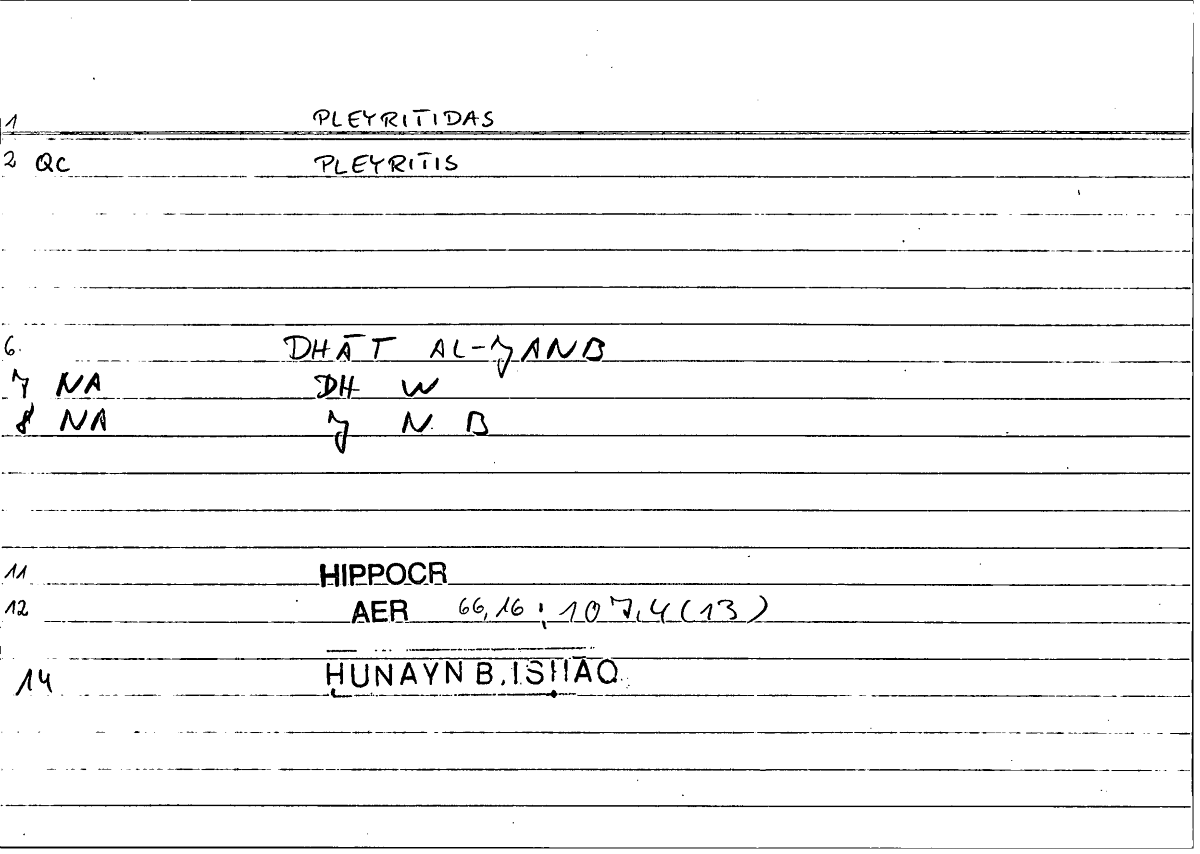 1 PLEYRITIDAS
2 QC PLEYRITIS
6. DHĀT AL-JANB
7 NA DH W
8 NA J N B
11 HIPPOCR
12 AER 66,16; 107,4 (13)
14 ḤUNAYN B. ISḤĀQ